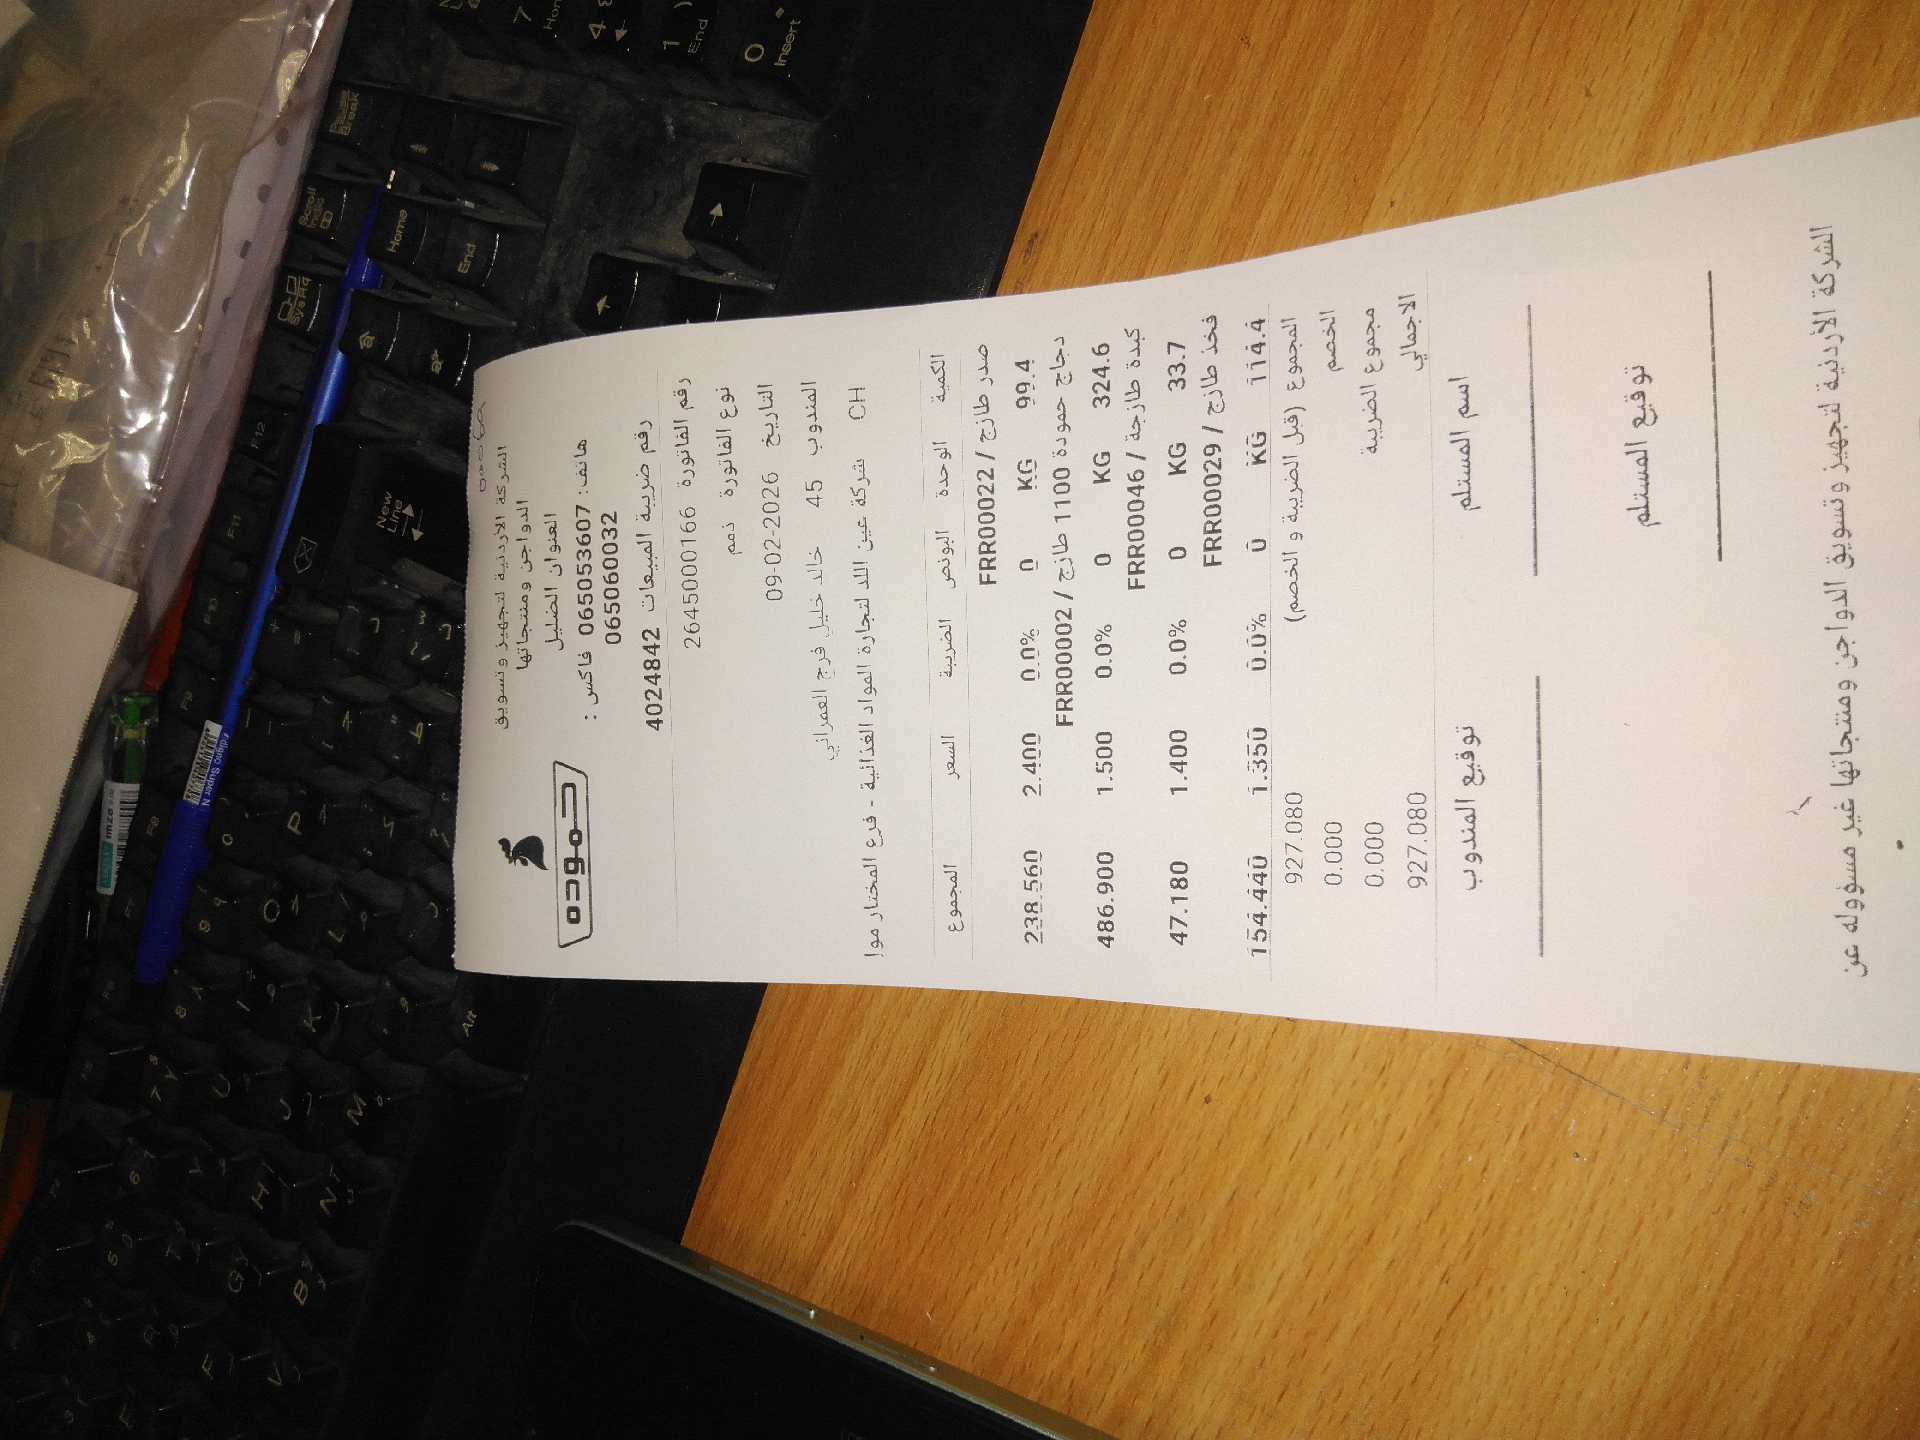 الشركة الأردنية لتجهيز وتسويق
الدواجن ومنتجاتها
العنوان الضليل
هاتف: 065053607 فاكس:
065060032
رقم ضريبة المبيعات 4024842
حموده
رقم الفاتورة 2645000166
نوع الفاتورة ذمم
التاريخ 09-02-2026
المندوب 45 خالد خليل فرج العمراني
CH شركة عين اللد لتجارة المواد الغذائية - فرع المختار مولا
الكمية الوحدة البونص الضريبة السعر المجموع
صدر طازج / FRR00022
99.4 KG 0 0.0% 2.400 238.560
دجاج حمودة 1100 طازج / FRR00002
324.6 KG 0 0.0% 1.500 486.900
كبدة طازجة / FRR00046
33.7 KG 0 0.0% 1.400 47.180
فخذ طازج / FRR00029
114.4 KG 0 0.0% 1.350 154.440
المجموع (قبل الضريبة و الخصم) 927.080
الخصم 0.000
مجموع الضريبة 0.000
الاجمالي 927.080
اسم المستلم توقيع المندوب
توقيع المستلم
الشركة الأردنية لتجهيز وتسويق الدواجن ومنتجاتها غير مسؤوله عن
Pause
Break
Scroll
SysRq
Home
End
New
Line
F12
F11
F10
Alt
7
4
1
End
0
Insert
digno Super N
imza